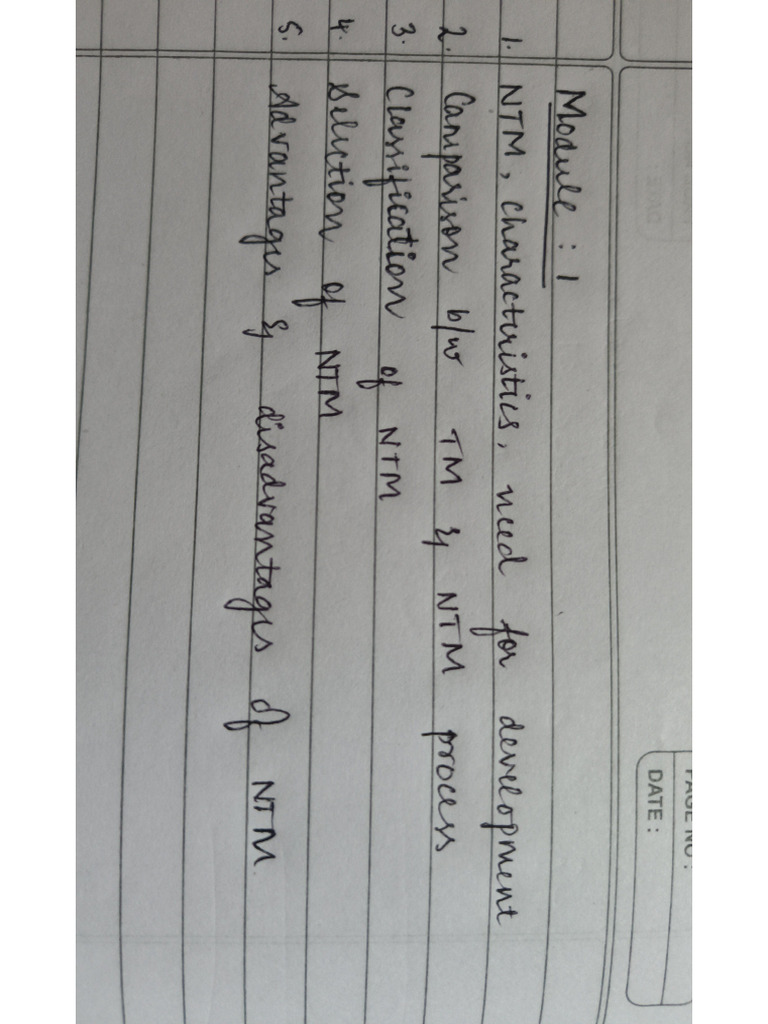 PAGE NO :
DATE :
Module : 1
1. NTM, characteristics, need for development
2. Comparison b/w TM & NTM process
3. Classification of NTM
4. Selection of NTM
5. Advantages & disadvantages of NTM.